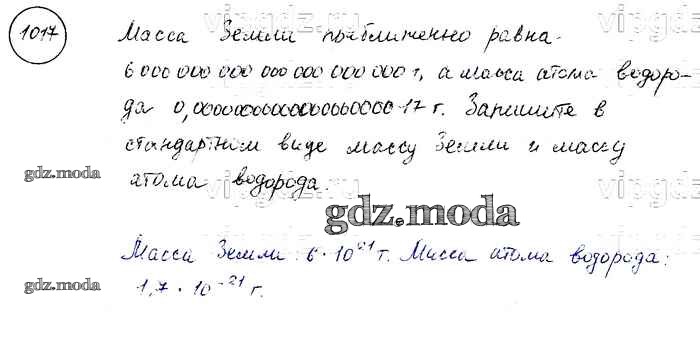 1017
Масса Земли приближенно равна
6 000 000 000 000 000 000 000 т, а масса атома водоро-
да 0,0000000000000000000017 г. Запишите в
стандартном виде массу Земли и массу
атома водорода.
gdz.moda
gdz.moda
Масса Земли: 6 · 10²¹ т. Масса атома водорода:
1,7 · 10⁻²¹ г.
gdz.moda
vipgdz
vipgdz
vipgdz